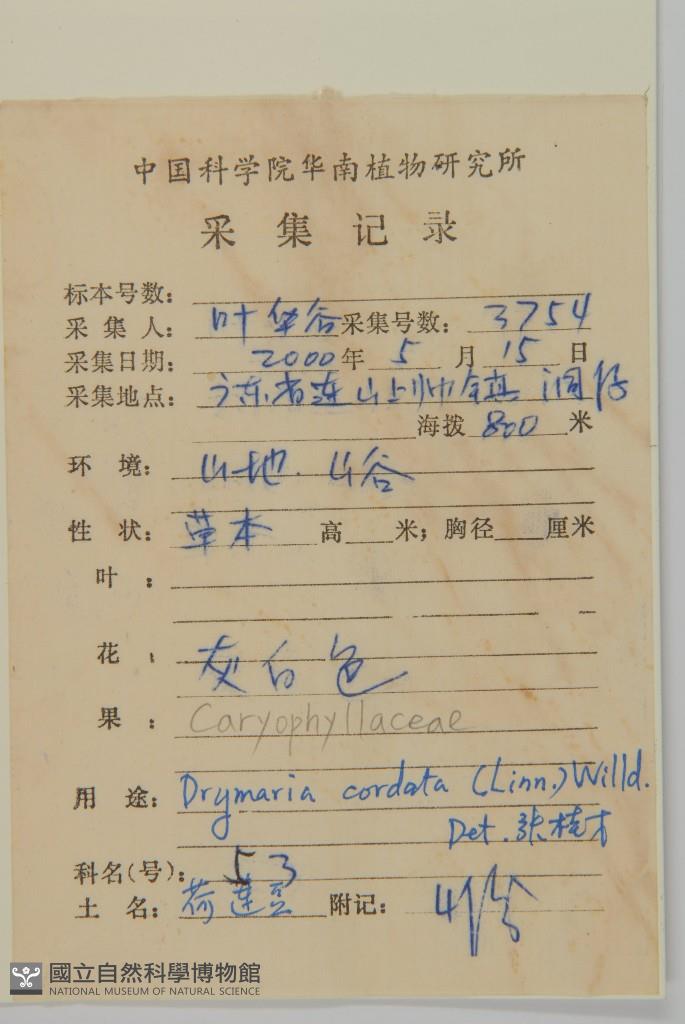 中国科学院华南植物研究所
采集记录
标本号数：
采集人：叶华谷采集号数：3754
采集日期：2000年5月15日
采集地点：广东省连山上帅镇洞仔
海拨800米
环境：山地．山谷
性状：草本 高 米；胸径 厘米
叶：
花：灰白色
果：Caryophyllaceae
用途：Drymaria cordata (Linn.) Willd.
Det. 张桂才
科名(号)：53
土名：荷莲豆 附记：4份
國立自然科學博物館
NATIONAL MUSEUM OF NATURAL SCIENCE